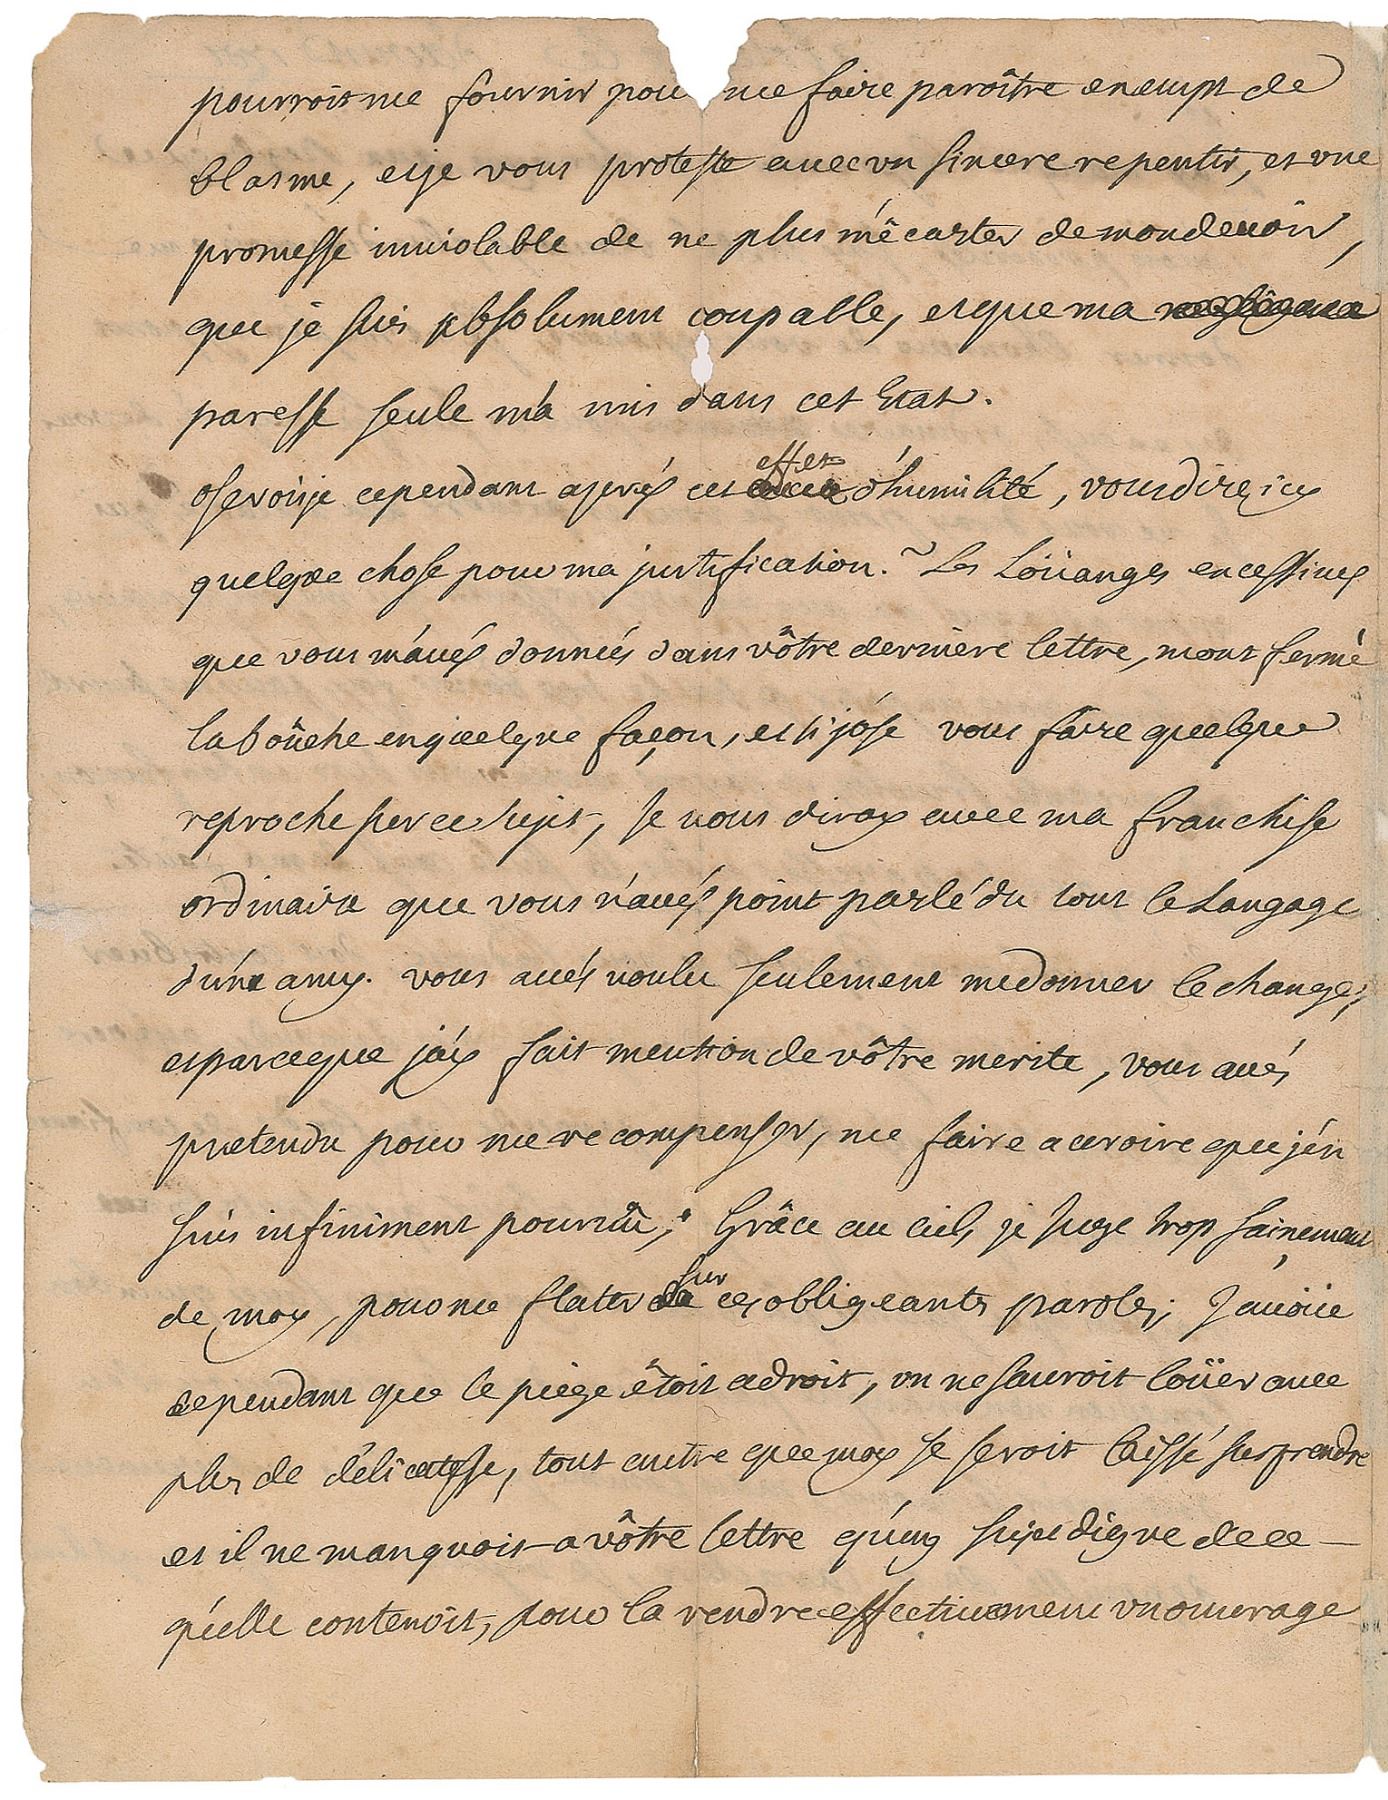 pourroit me fournir pour me faire paroître exempt de
blasme, et je vous proteste auec vn sincere repentir, et vne
promesse inuiolable de ne plus m'êcarter de mon deuoir,
que je suis absolument coupable, et que ma negligence
paresse seule m'a mis dans cet Etat.
oserois-je cependant aprés cet effet d'humilité, vous dire icy
quelque chose pour ma justification. Les Loüanges excessiues
que vous m'aués donnés dans vôtre derniere lettre, m'ont fermé
la boûche en quelque façon, et si j'ôse vous faire quelque
reproche sur ce sujet, Je vous diray auec ma franchise
ordinaire que vous n'aués point parlé du tout le Langage
d'un amy. vous aués voulu seulement me donner le change,
et parce que j'ay fait mention de vôtre merite, vous aués
pretendu pour me recompenser, me faire acroire que j'en
suis infiniment pourvû, Grâce au ciel, je Juge trop sainement
de moy, pour me flater sur ces obligeants paroles; J'auoüe
cependant que le piege étoit adroit, on ne sauroit loüer auec
plus de délicatesse, tout autre que moy se seroit laissé surprendre
et il ne manquoit a vôtre lettre qu'un sujet digne de ce
qu'elle contenoit, pour la rendre effectiuement vn ouurage